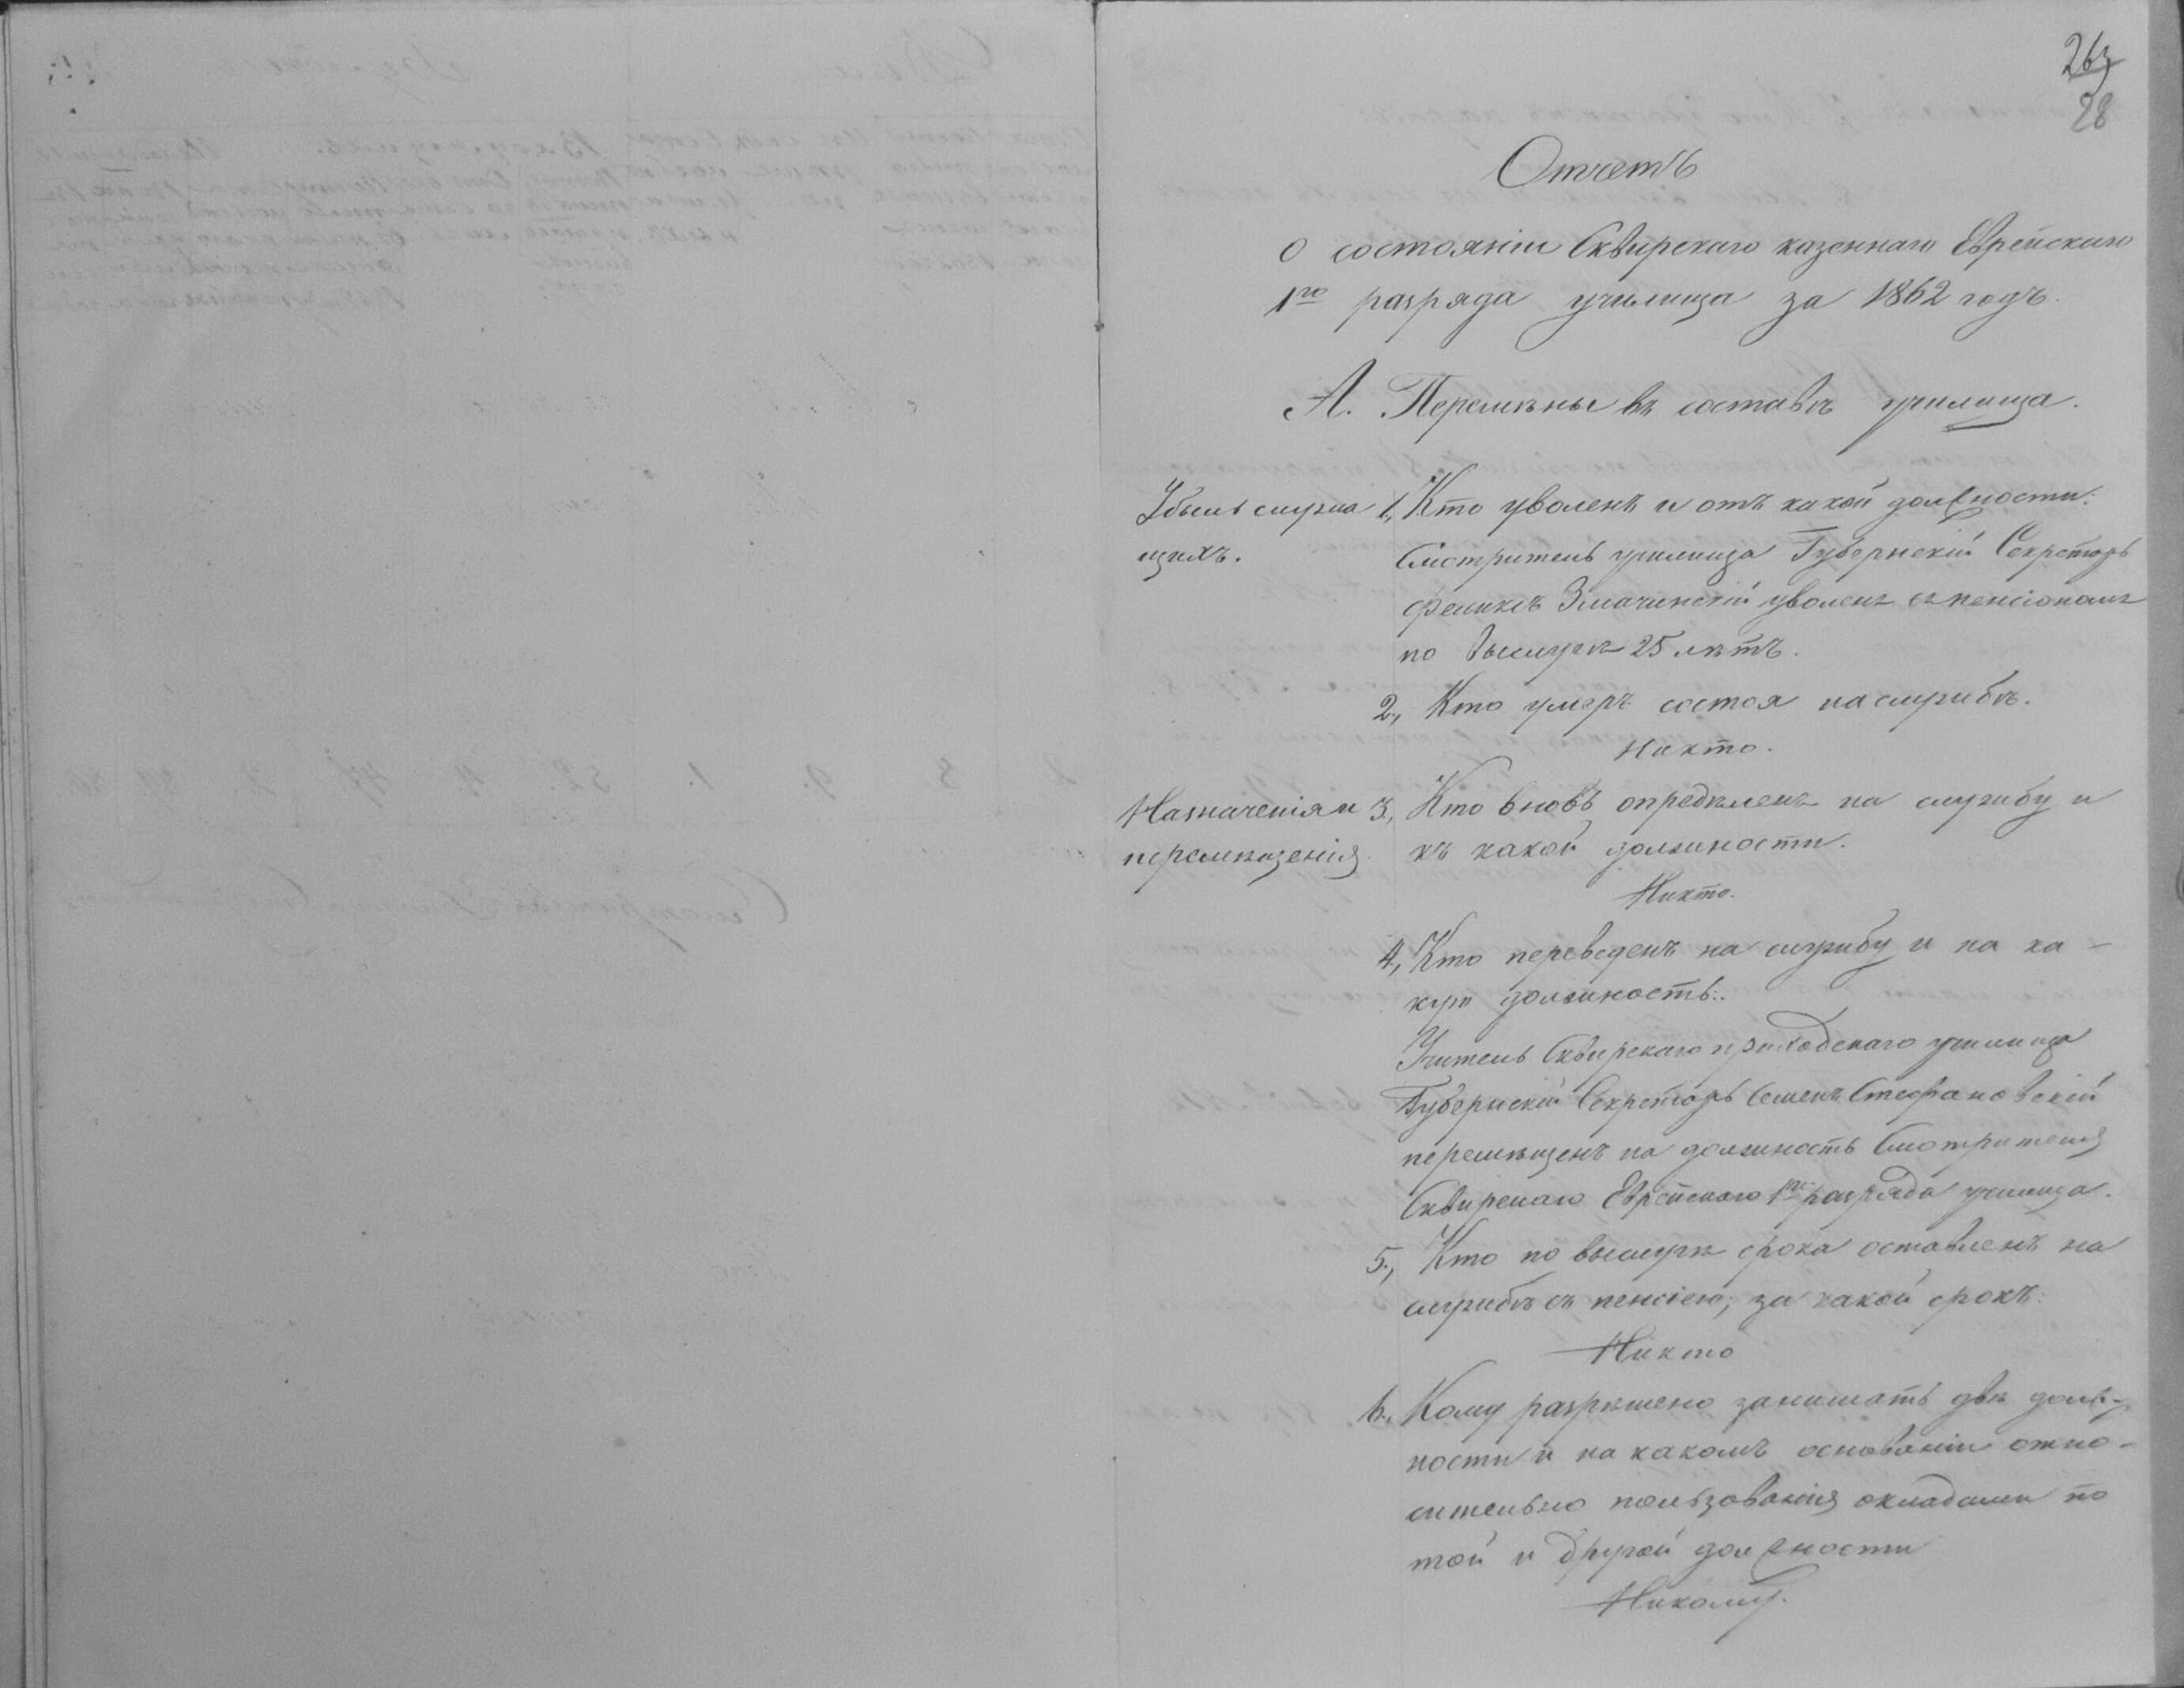 263
28
Отчетъ
о состояніи Сквирскаго казеннаго Еврейскаго
1го разряда училища за 1862 годъ.
А. Перемѣны въ составѣ училища.
Убыль служа
щихъ.
1., Кто уволенъ и отъ какой должности:
Смотритель училища Губернскій Секретарь
Феликсъ уволенъ съ пенсіономъ
по выслугѣ 25 лѣтъ.
2., Кто умеръ состоя на службѣ.
Никто.
Назначенія и
перемѣщенія.
3., Кто вновь опредѣленъ на службу и
къ какой должности.
Никто.
4., Кто переведенъ на службу и на ка-
кую должность:.
Учитель Сквирскаго приходскаго училища
Губернскій Секретарь Семенъ Стефановскій
перемѣщенъ на должность Смотрителя
Сквирскаго Еврейскаго 1го разряда училища.
5., Кто по выслугѣ срока оставленъ на
службѣ съ пенсіею, за какой срокъ:
Никто
6., Кому разрѣшено занимать двѣ долж-
ности и на какомъ основаніи отно-
сительно пользованія окладами по
той и другой должности
Никому.